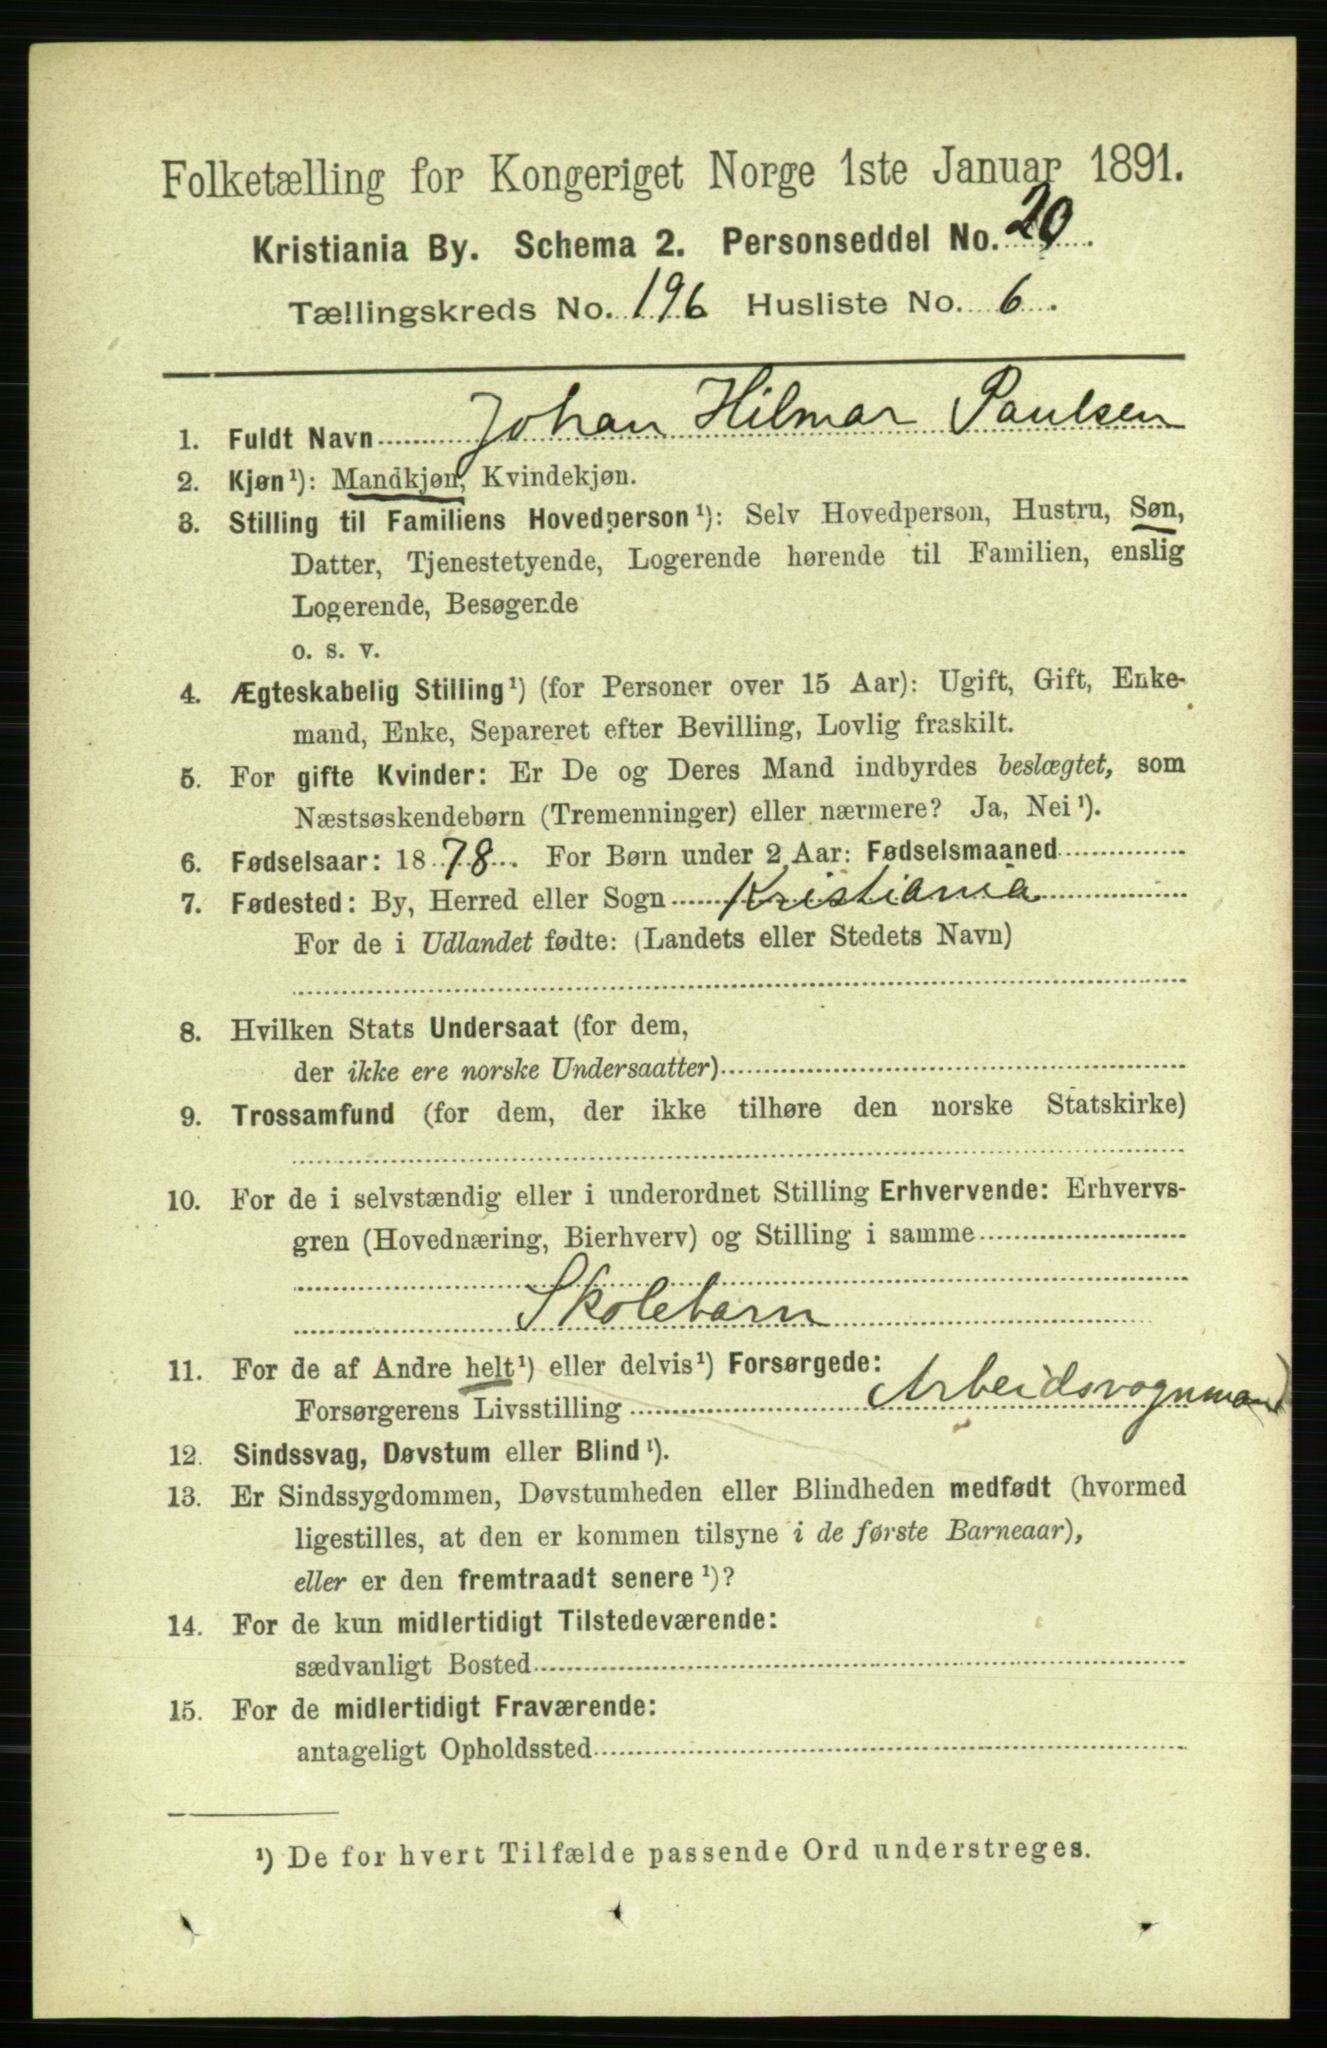 Folketælling for Kongeriget Norge 1ste Januar 1891.
Kristiania By. Schema 2. Personseddel No. 20.
Tællingskreds No. 196 Husliste No. 6.
1. Fuldt Navn Johan Hilmar Paulsen
2. Kjøn¹): Mandkjøn, Kvindekjøn.
3. Stilling til Familiens Hovedperson¹): Selv Hovedperson, Hustru, Søn,
Datter, Tjenestetyende, Logerende hørende til Familien, enslig
Logerende, Besøgende
o. s. v.
4. Ægteskabelig Stilling¹) (for Personer over 15 Aar): Ugift, Gift, Enke-
mand, Enke, Separeret efter Bevilling, Lovlig fraskilt.
5. For gifte Kvinder: Er De og Deres Mand indbyrdes beslægtet, som
Næstsøskendebørn (Tremenninger) eller nærmere? Ja, Nei¹).
6. Fødselsaar: 1878. For Børn under 2 Aar: Fødselsmaaned
7. Fødested: By, Herred eller Sogn Kristiania
For de i Udlandet fødte: (Landets eller Stedets Navn)
8. Hvilken Stats Undersaat (for dem,
der ikke ere norske Undersaatter)
9. Trossamfund (for dem, der ikke tilhøre den norske Statskirke)
10. For de i selvstændig eller i underordnet Stilling Erhvervende: Erhvervs-
gren (Hovednæring, Bierhverv) og Stilling i samme
Skolebarn
11. For de af Andre helt¹) eller delvis¹) Forsørgede:
Forsørgerens Livsstilling Arbeidsvognmand
12. Sindssvag, Døvstum eller Blind¹).
13. Er Sindssygdommen, Døvstumheden eller Blindheden medfødt (hvormed
ligestilles, at den er kommen tilsyne i de første Barneaar),
eller er den fremtraadt senere¹)?
14. For de kun midlertidigt Tilstedeværende:
sædvanligt Bosted
15. For de midlertidigt Fraværende:
antageligt Opholdssted
¹) De for hvert Tilfælde passende Ord understreges.